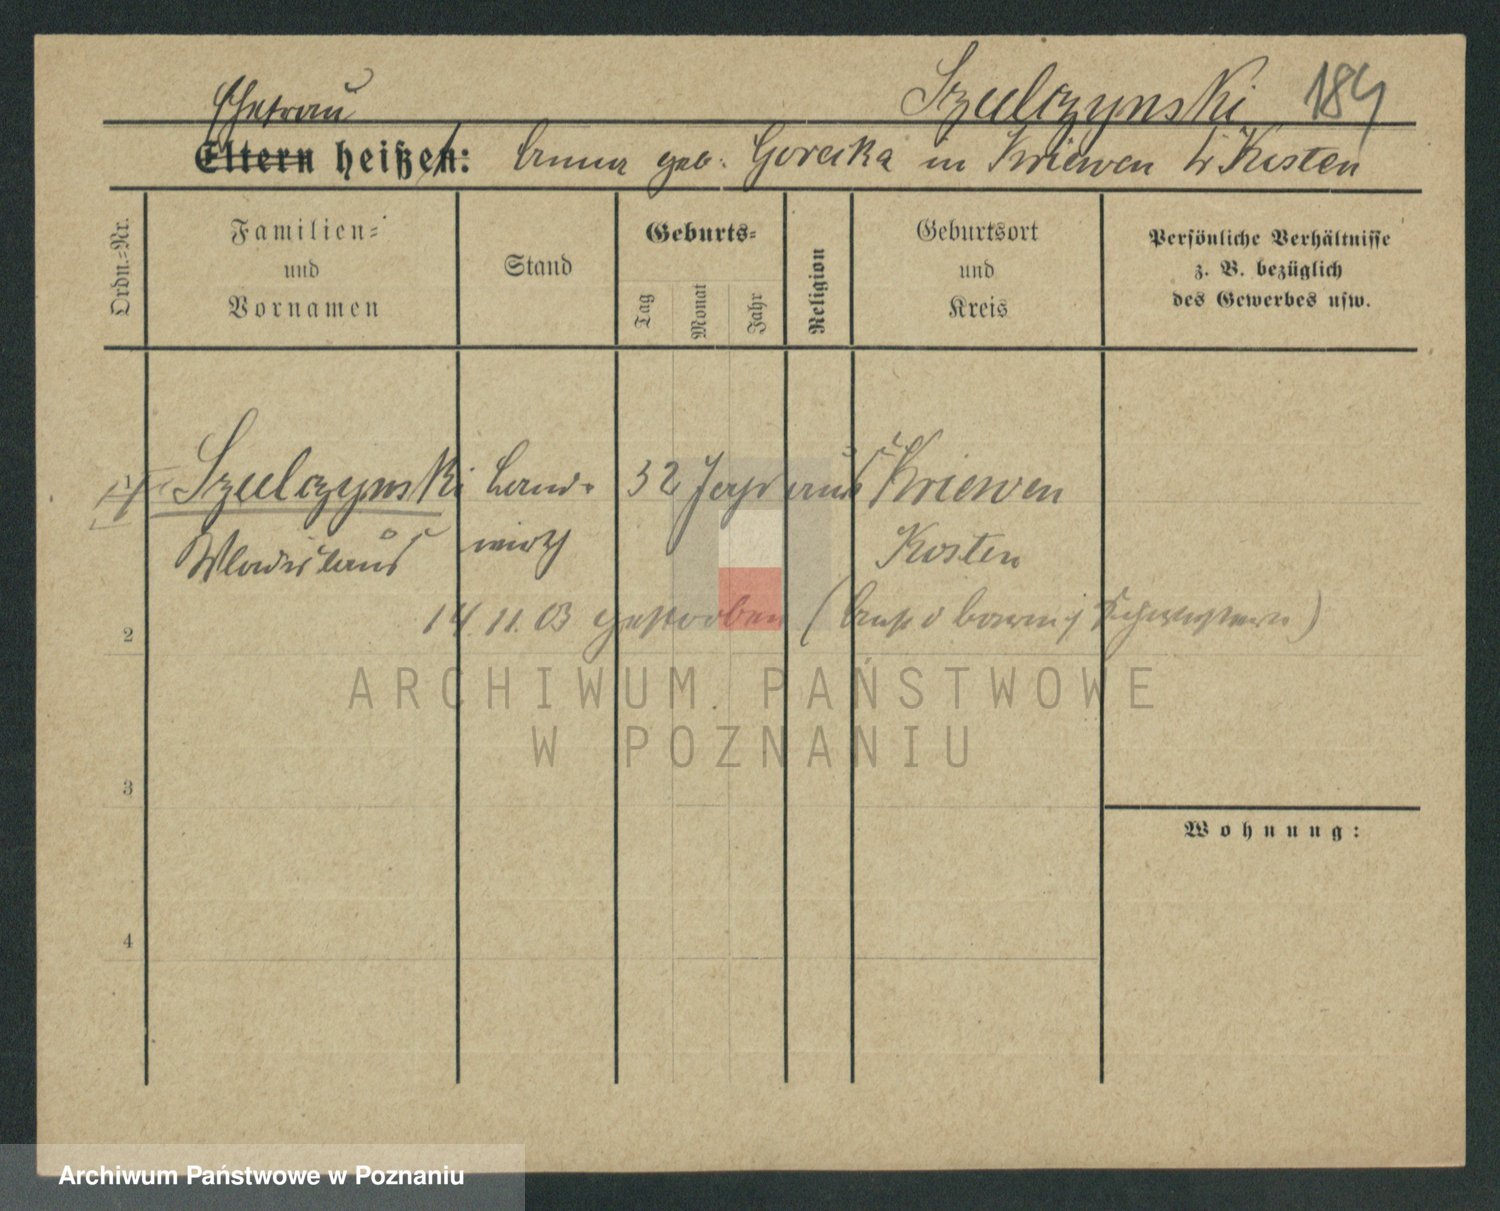 Szulczynski 184
Ehefrau
Eltern heißen: Anna geb. Gorecka in Kriewen Kr Kosten
Ordn.-Nr.
Familien-
und
Vornamen
Stand
Geburts-
Tag
Monat
Jahr
Religion
Geburtsort
und
Kreis
Persönliche Verhältnisse
z. B. bezüglich
des Gewerbes usw.
1 Szulczynski Land- 32 Jahr aus Kriewen
Wladislaus wirth Kosten
14.11.03 gestorben ( Schwestern )
2
ARCHIWUM PAŃSTWOWE
W POZNANIU
3
Wohnung:
4
Archiwum Państwowe w Poznaniu